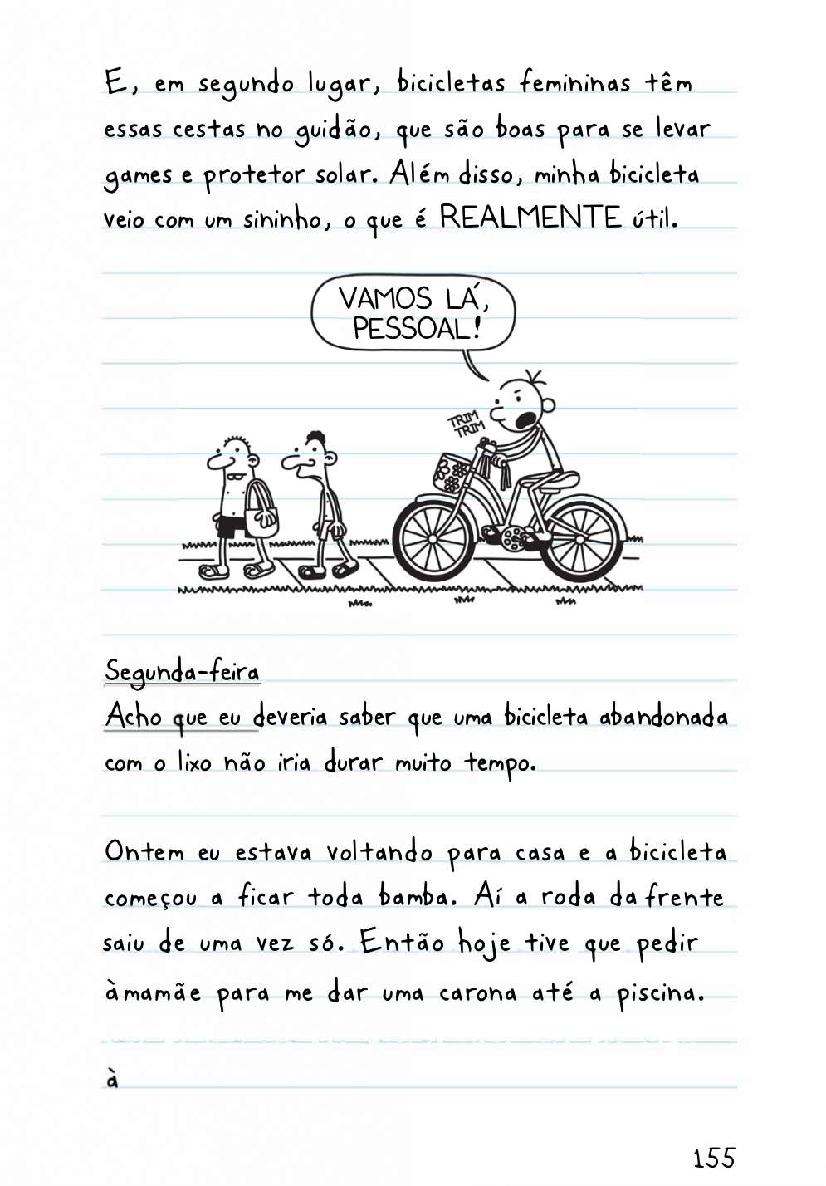 E, em segundo lugar, bicicletas femininas têm
essas cestas no guidão, que são boas para se levar
games e protetor solar. Além disso, minha bicicleta
veio com um sininho, o que é REALMENTE útil.
VAMOS LÁ,
PESSOAL!
TRIM
TRIM
Segunda-feira
Acho que eu deveria saber que uma bicicleta abandonada
com o lixo não iria durar muito tempo.
Ontem eu estava voltando para casa e a bicicleta
começou a ficar toda bamba. Aí a roda da frente
saiu de uma vez só. Então hoje tive que pedir
àmamãe para me dar uma carona até a piscina.
à
155